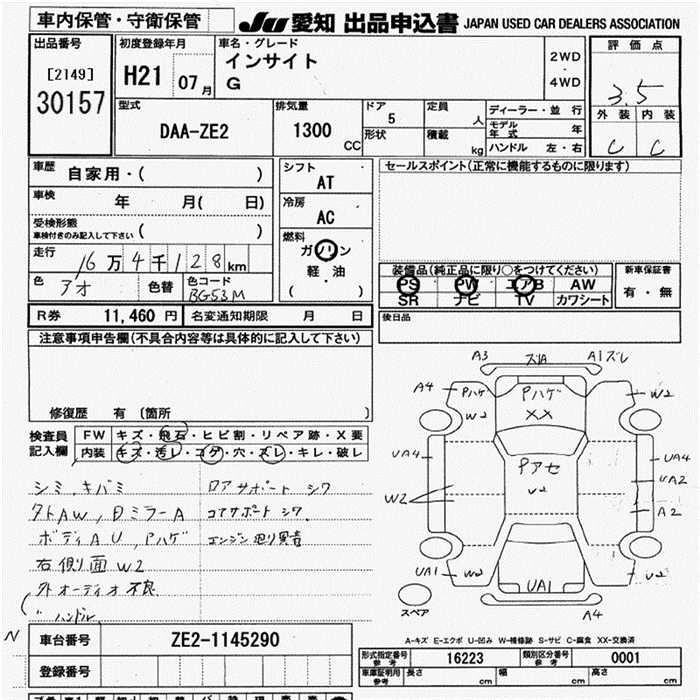 車内保管・守衛保管
JU 愛知 出品申込書 JAPAN USED CAR DEALERS ASSOCIATION
出品番号
[2149]
30157
初度登録年月
H21 07月
車名・グレード
インサイト
G
2WD
・
4WD
評価点
3.5
外装 内装
C C
型式
DAA-ZE2
排気量
1300 CC
ドア
5
形状
定員
人
積載
kg
ディーラー・並行
モデル年式 年
ハンドル 左・右
車歴 自家用・( )
車検 年 月( 日)
受検形態
車検付きのみ記入して下さい ( )
走行 16万4千128km
色 アオ 色替 色コード BG53M
シフト
AT
冷房
AC
燃料
ガソリン
軽・油
( )
セールスポイント(正常に機能するものに限ります)
装備品(純正品に限り○をつけてください)
PS PW エアB AW
SR ナビ TV カワシート
新車保証書
有・無
R券 11,460円 名変通知期限 月 日
後日品
注意事項申告欄(不具合内容等は具体的に記入して下さい)
修復歴 有 (箇所 )
検査員記入欄
FW キズ・飛石・ヒビ割・リペア跡・X要
内装 キズ・汚レ・コゲ・穴・ズレ・キレ・破レ
シミ、キバミ
外AW,DミラーA
ボディAU,Pハゲ
右側面W2
外オーディオ不良
〃ハンドル
ロアサポート シワ
コアサポート シワ
エンジン廻り異音
A3 ズレA A1ズレ
A4 Pハゲ Pハゲ W2
W2 XX
UA4 Pアセ UA4
W2 UA2
W2 A2
UA1 W2 UA1 U2
スペア A4
A-キズ E-エクボ U-凹み W-補修跡 S-サビ C-腐食 XX-交換済
N
車台番号 ZE2-1145290
登録番号
型式指定番号 参考 16223 類別区分番号 参考 0001
車庫証明用 参考 長さ cm 幅 cm 高さ cm